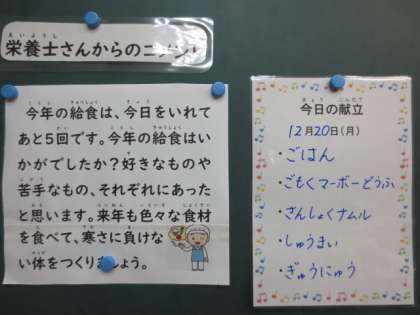 栄養士さんからのコメント
今年の給食は、今日をいれて
あと5回です。今年の給食はい
かがでしたか?好きなものや
苦手なもの、それぞれにあった
と思います。来年も色々な食材
を食べて、寒さに負けな
い体をつくりましょう。
今日の献立
12月20日(月)
・ごはん
・ごもくマーボーどうふ
・さんしょくナムル
・しゅうまい
・ぎゅうにゅう